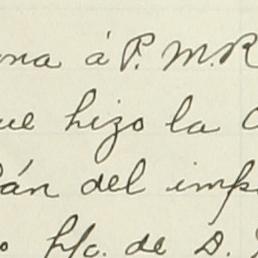 na á P. M. R
ue hizo la
án del imp
o f/c. de D.